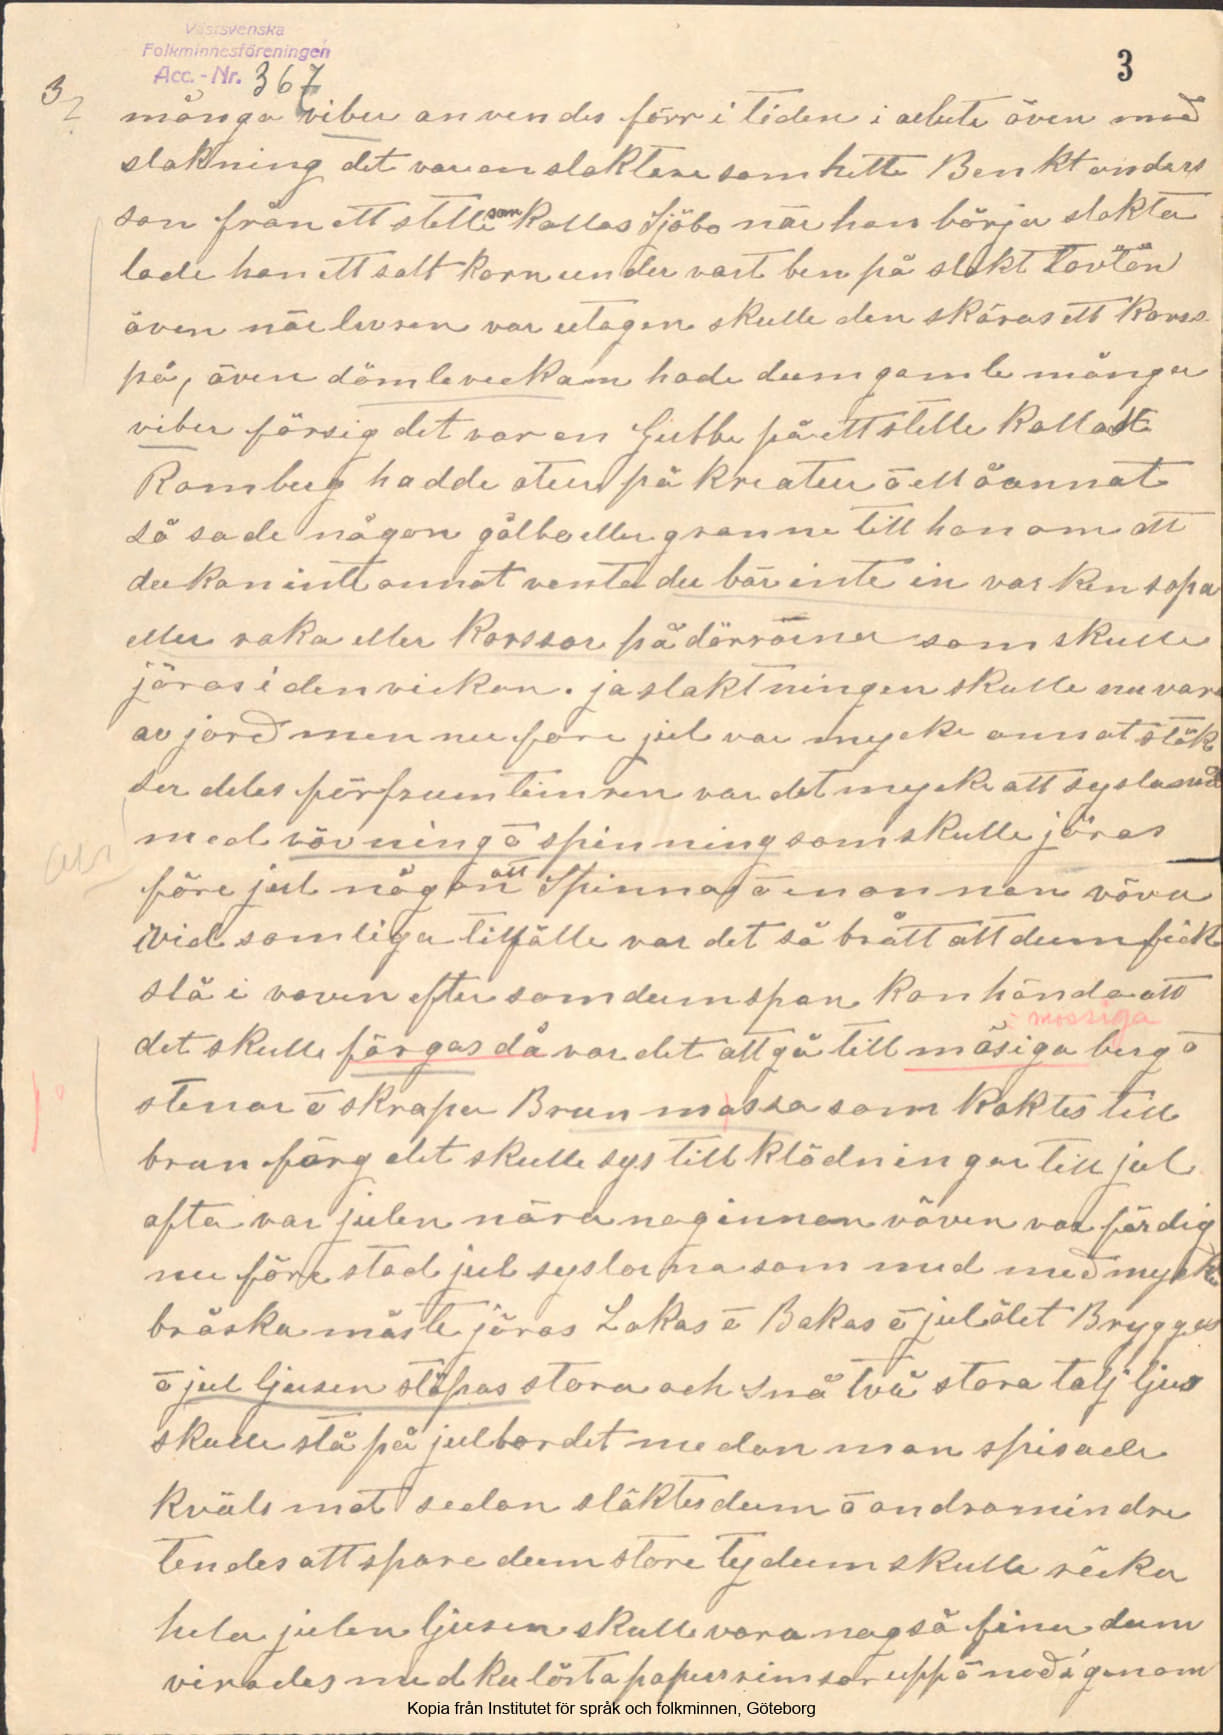 Västsvenska
Folkminnesföreningen
Acc.-Nr. 367
3
3
många viber anvendes förr i tiden i arbete även med
slakning det var en slaktare som hette Benkt anders
son från ett ställe som kallas Sjöbo när han börja slakta
lade han ett salt korn under vart ben på slakt
även när levren var utagen skulle den skäras ett korss
på, även dömleveckam hade dum gamle många
viber försig det var en Gubbe på ett stelle kallatt
Romberg hadde otur på kreatur ö ell åannat
så sade någon gålbo eller granne till honom att
du kan inte annat venta du bär inte in varken sopa
eller raka eller korssar på dörrärna som skulle
jöras i den vickan. ja slaktningen skulle nu vara
av jord men nu före jul var mycke annat stök
ser deles förfruntimren var det mycke att sysla med
med vövning ö spinning som skulle jöras
före jul någon att Spinna ö en annan vöva
vid somliga tilfälle var det så brått att dum fick
slå i voven efter som dum span kanhända att
mossiga
det skulle förgas då var det att gå till mäsiga berg ö
stenar ö skrapa Brun massa som koktes till
brun färg det skulle sys till klödningar till jul
ofta var julen nära nog innan vöven var färdig
nu före stod jul syslorna som med med mycke
bråska måste jöras Lokas ö Bakas ö julölet Bryggas
ö jul ljusen stöpas stora och små två stora talj ljus
skulle stå på julbordet medan man spisade
kväls mat sedan släktes dum ö andra mindre
tendes att spare dum store ty dum skulle räcka
hela julen ljusen skulle vara nog så fina dum
virades med kulörta papersrimsor upp ö ned igenom
Kopia från Institutet för språk och folkminnen, Göteborg